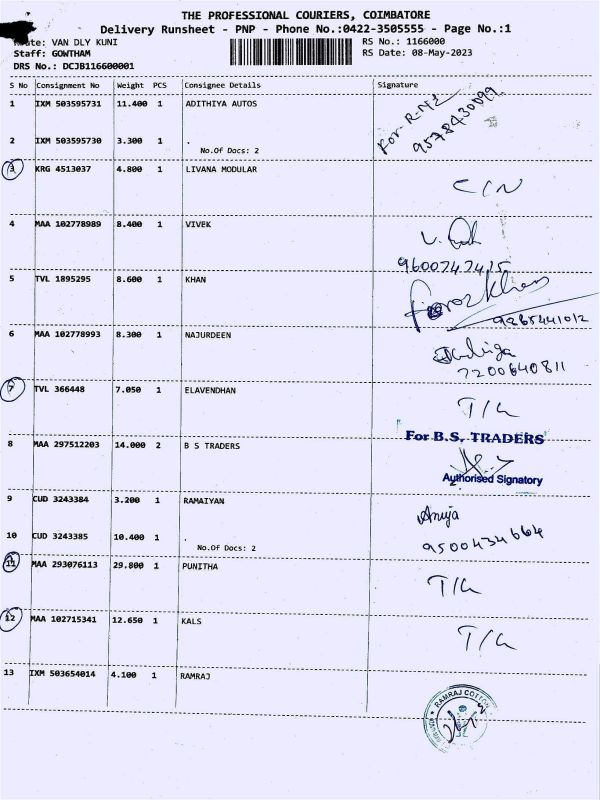 THE PROFESSIONAL COURIERS, COIMBATORE
Delivery Runsheet - PNP - Phone No.:0422-3505555 - Page No.:1
Route: VAN DLY KUNI
RS No.: 1166000
Staff: GOWTHAM
RS Date: 08-May-2023
DRS No.: DCJB116600001
S No Consignment No Weight PCS Consignee Details Signature
1 IXM 503595731 11.400 1 ADITHIYA AUTOS
For-
9578430099
2 IXM 503595730 3.300 1 .
No.Of Docs: 2
3 KRG 4513037 4.800 1 LIVANA MODULAR
C/N
4 MAA 102778989 8.400 1 VIVEK
9600747415
5 TVL 1895295 8.600 1 KHAN
Feroz Khan
9265441012
6 MAA 102778993 8.300 1 NAJURDEEN
7200640811
7 TVL 366448 7.050 1 ELAVENDHAN
For B.S. TRADERS
8 MAA 297512203 14.000 2 B S TRADERS
Authorised Signatory
9 CUD 3243384 3.200 1 RAMAIYAN
Anuja
9500434664
10 CUD 3243385 10.400 1 .
No.Of Docs: 2
11 MAA 293076113 29.800 1 PUNITHA
12 MAA 102715341 12.650 1 KALS
13 IXM 503654014 4.100 1 RAMRAJ
RAMRAJ COTTON